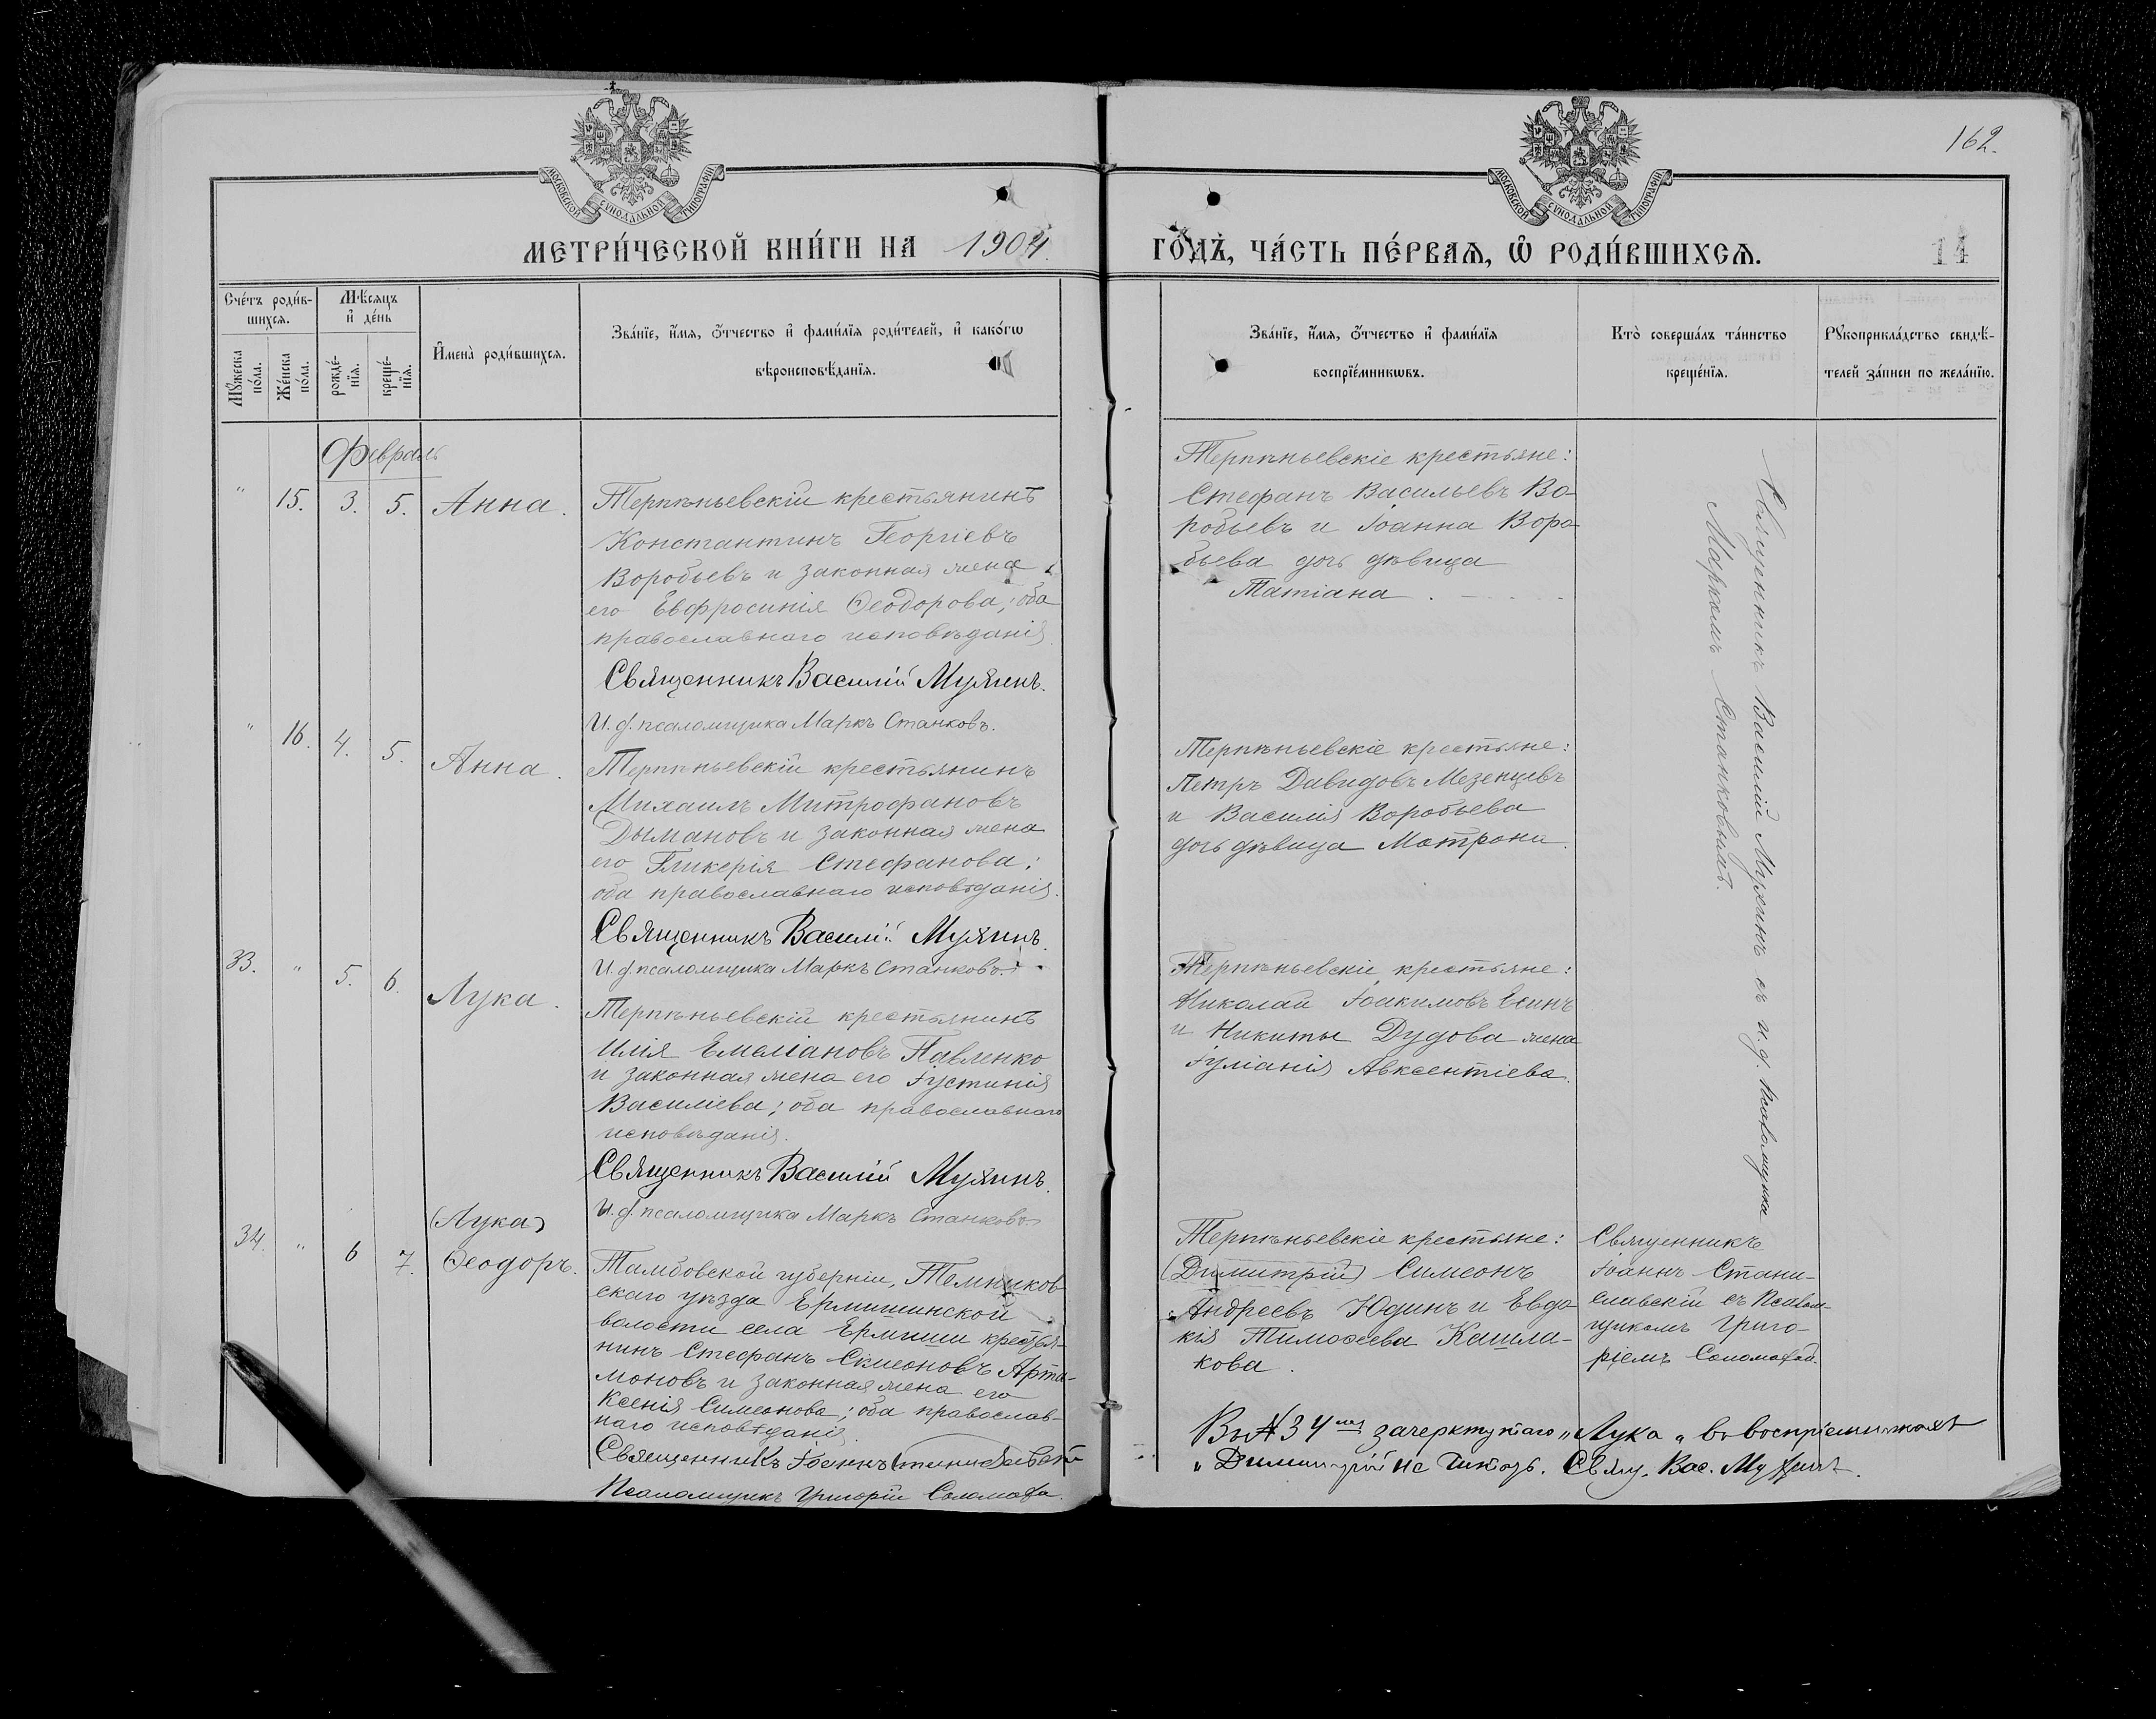 162.
МОСКОВСКОЙ СУНОДАЛЬНОЙ ТИПОГРАФІИ
МОСКОВСКОЙ СУНОДАЛЬНОЙ ТИПОГРАФІИ
МЕТРИ́ЧЕСКОЙ КНИ́ГИ НА 1904.
ГО́ДЪ, ЧА́СТЬ ПЕ́РВАѦ, Ѽ РОДИ́ВШИХСѦ.
14
Сче́тъ роди́в-
шихсѧ.
Мꙋ́жеска
по́ла.
Же́нска
по́ла.
Мѣ́сѧцъ
и҆ де́нь
рожде́-
нїѧ.
креще́-
нїѧ.
И҆мена̀ роди́вшихсѧ.
Зва́нїе, и҆́мѧ, ѻ҆́тчество и҆ фами́лїѧ роди́телей, и҆ како́гѡ
вѣроисповѣ́данїѧ.
Зва́нїе, и҆́мѧ, ѻ҆́тчество и҆ фами́лїѧ
воспрїе́мникѡвъ.
Кто̀ соверша́лъ та́инство
креще́нїѧ.
Рꙋкоприкла́дство свидѣ́-
телей за́писи по жела́нїю.
Февраль
" 15. 3. 5. Анна.
Терпѣньевскій крестьянинъ
Константинъ Георгіевъ
Воробьевъ и законная жена
его Евфросинія Ѳеодорова; оба
православнаго исповѣданія.
Священникъ Василій Мухинъ.
И. д. псаломщика Маркъ Станковъ.
Терпѣньевскіе крестьяне:
Стефанъ Васильевъ Во-
робьевъ и Іоанна Воро-
бьева дочь дѣвица
Татіана.
Священникъ Василій Мухинъ съ и. д. псаломщика
Маркомъ Станковымъ.
" 16. 4. 5. Анна.
Терпѣньевскій крестьянинъ
Михаилъ Митрофановъ
Дымановъ и законная жена
его Гликерія Стефанова;
оба православнаго исповѣданія.
Священникъ Василій Мухинъ.
И. д. псаломщика Маркъ Станковъ.
Терпѣньевскіе крестьяне:
Петръ Давидовъ Мезенцевъ
и Василія Воробьева
дочь дѣвица Мотрона.
33. " 5. 6. Лука.
Терпѣньевскій крестьянинъ
Илія Емеліановъ Павленко
и законная жена его Іустинія
Василіева; оба православнаго
исповѣданія.
Священникъ Василій Мухинъ.
И. д. псаломщика Маркъ Станковъ.
Терпѣньевскіе крестьяне:
Николай Іоакимовъ Есинъ
и Никиты Дудова жена
Іуліанія Авксентіева.
(Лука)
34. " 6 7. Ѳеодоръ.
Тамбовской губерніи, Темников-
скаго уѣзда Ермишинской
волости села Ермиши крестья-
нинъ Стефанъ Симеоновъ Арта-
моновъ и законная жена его
Ксенія Симеонова; оба православ-
наго исповѣданія.
Священникъ Іоаннъ Станиславскій
Псаломщикъ Григорій Соломаха.
Терпѣньевскіе крестьяне:
(Димитрій) Симеонъ
Андреевъ Юдинъ и Евдо-
кія Тимоѳеева Кашла-
кова.
Священникъ
Іоаннъ Стани-
славскій съ Псалом-
щикомъ Григо-
ріемъ Соломахой.
Въ № 34мъ зачеркнутаго „Лука„ въ воспріемникахъ
„Димитрій не читать. Свящ. Вас. Мухинъ.